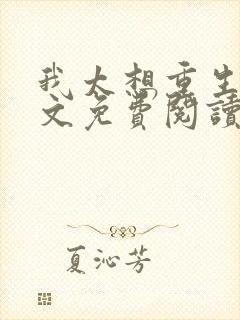 我大想重生
文免費閱讀
夏沁芳